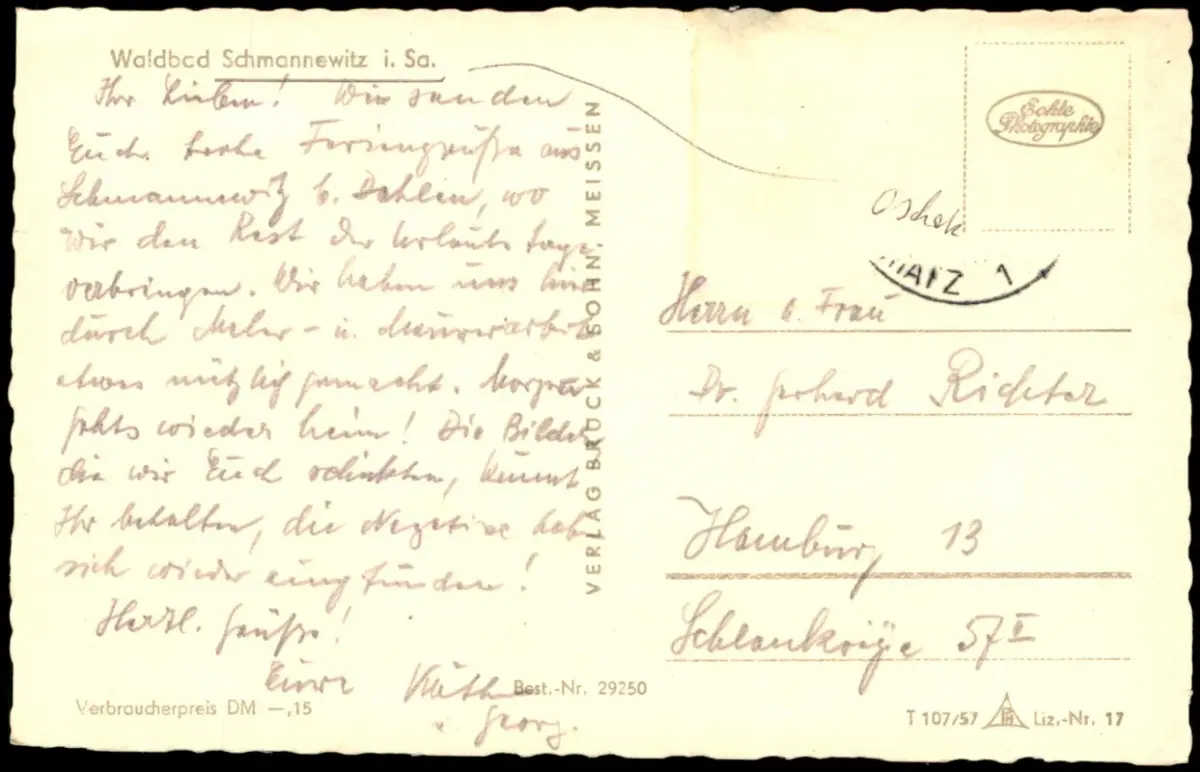 Waldbad Schmannewitz i. Sa.
Ihr Lieben! Wir senden
Euch frohe Feriengrüße aus
Schmannewitz b. Dahlen, wo
wir den Rest der Urlaubstage
verbringen. Wir haben uns hier
durch Maler- u. Maurerarbeit
etwas nützlich gemacht. Morgen
gehts wieder heim! Die Bilder
die wir Euch schickten, könnt
Ihr behalten, die Negative haben
sich wieder eingefunden!
Herzl. Grüße!
Eure Käthe
u. Georg.
Verbraucherpreis DM —,15
Best.-Nr. 29250
VERLAG BRÜCK & SOHN, MEISSEN
Echte
Photographie
Oschatz
Herrn u. Frau
Dr. Gerhard Richter
Hamburg 13
Schlankreye 57 II
T 107/57 Liz.-Nr. 17